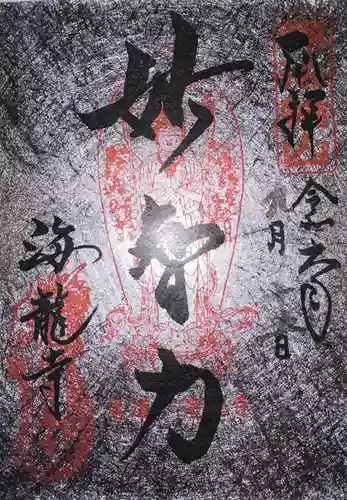 奉拝
令和六年
月 日
妙智力
海龍寺